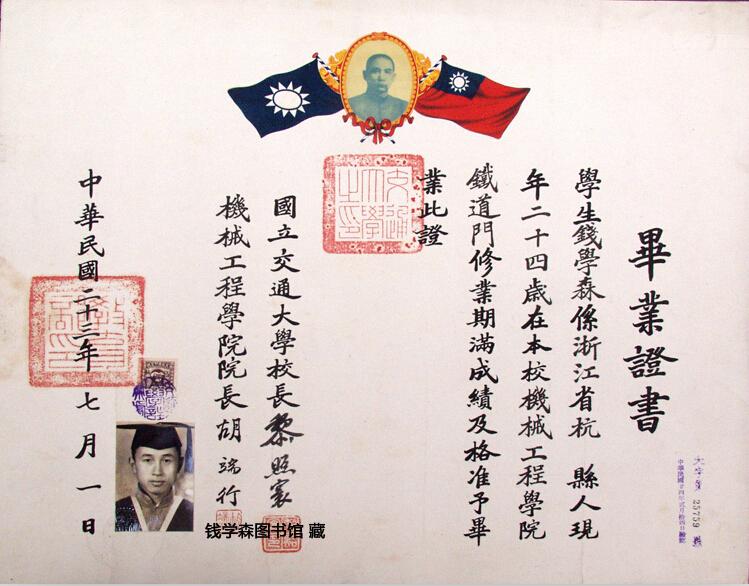 畢業證書
學生錢學森係浙江省杭 縣人現
年二十四歲在本校機械工程學院
鐵道門修業期滿成績及格准予畢
業此證
國立交通大學校長黎照寰
機械工程學院院長胡端行
中華民國二十三年七月一日
交通
大學
之印
教育
部印
25759
钱学森图书馆 藏